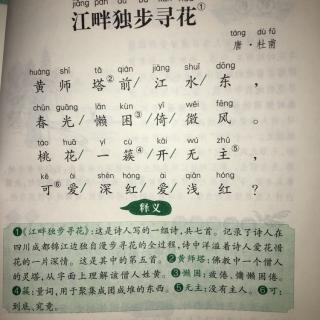 jiāng pàn dú bù xún huā
江畔独步寻花①
táng dù fǔ
唐·杜甫
huáng shī tǎ qián jiāng shuǐ dōng
黄师塔②前/江水东，
chūn guāng lǎn kùn yǐ wēi fēng
春光/懒困③/倚/微风。
táo huā yí cù kāi wú zhǔ
桃花/一簇④/开/无主⑤，
kě ài shēn hóng ài qiǎn hóng
可⑥爱/深红/爱/浅红？
释义
❶《江畔独步寻花》：这是诗人写的一组诗，共七首。记录了诗人在
四川成都锦江边独自漫步寻花的全过程，诗中洋溢着诗人爱花惜
花的一片深情。这是其中的第五首。❷黄师塔：佛教中一个僧人
的灵塔，从字面上理解该僧人姓黄。❸懒困：疲倦、慵懒困倦。
❹簇：量词，用于聚集成团成堆的东西。❺无主：没有主人。❻可：
到底、究竟。